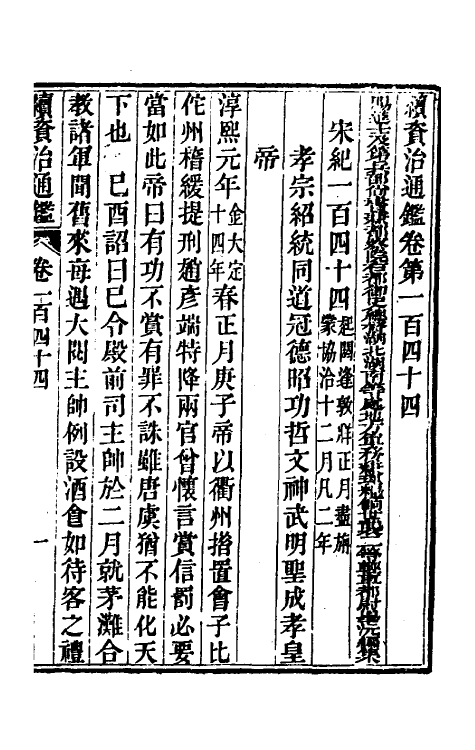 續資治通鑑卷第一百四十四
宋紀一百四十四起閼逢敦牂正月盡旃蒙協洽十二月凡二年
孝宗紹統同道冠德昭功哲文神武明聖成孝皇
帝
淳熙元年金大定十四年春正月庚子帝以衢州揩置會子比
佗州稽緩提刑趙彥端特降兩官曾懷言賞信罰必要
當如此帝曰有功不賞有罪不誅雖唐虞猶不能化天
下也 己酉詔曰已令殿前司主帥於二月就茅灘合
教諸軍聞舊來每遇大閱主帥例設酒食如待客之禮
續資治通鑑 卷一百四十四 一